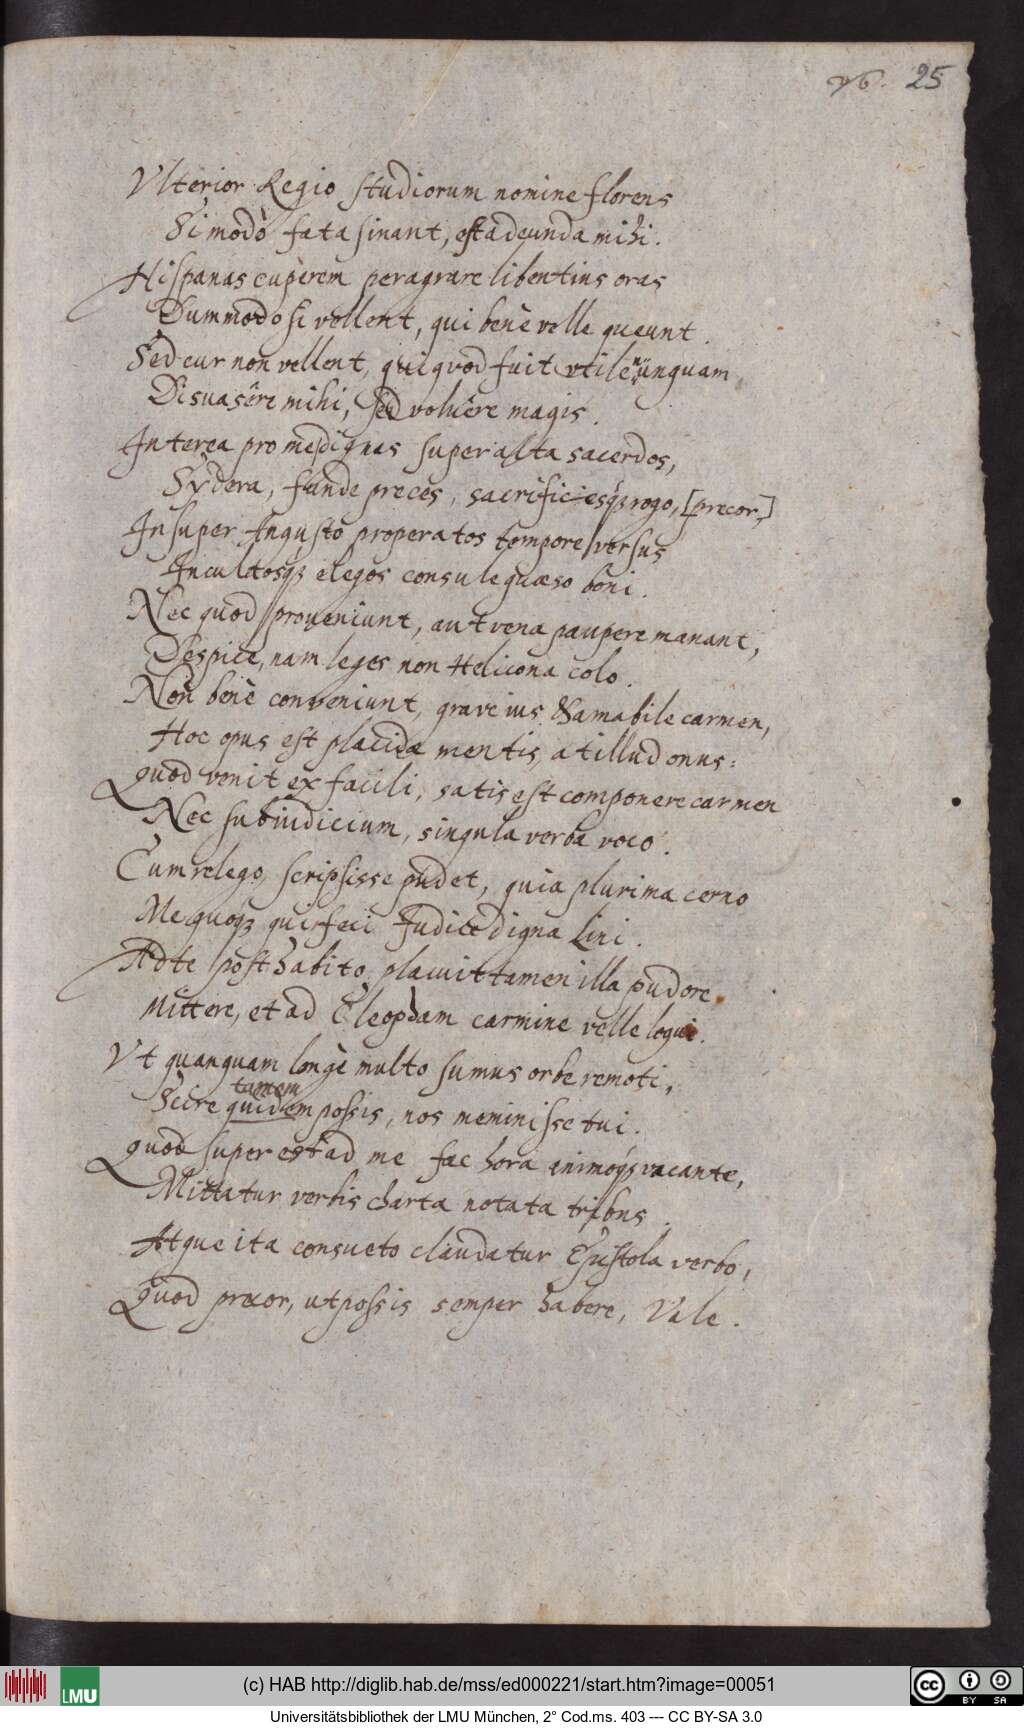 76. 25
Vlterior Regio studiorum nomine florens
Si modò fata sinant, est adeunda mihi.
Hispanas cuperem peragrare libentius oras
Dummodo si vellent, qui benè velle queunt.
Sed cur non vellent, qui quod fuit vtile unquam,
Disuasêre mihi, sed voluêre magis.
Interea pro me dignas super alta sacerdos,
Sÿdera, funde preces, sacrificiesqz rogo, [precor,]
Insuper Angusto properatos tempore versus
Incultosqz elegos consule quæso boni.
Nec quod proveniunt, aut vena paupere manant,
Despice, nam leges non Helicona colo.
Non benè conveniunt, grave ius & amabile carmen,
Hoc opus est placidæ mentis, at illud onus:
Quod venit ex facili, satis est componere carmen
Nec sub iudicium, singula verba voco.
Cum relego, scripsisse pudet, quia plurima cerno
Me quoqz qui feci Iudice digna Lini.
Ad te posthabito placuit tamen illa pudore
Mittere, et ad Cleopdam carmine velle loqui.
Vt quanquam longè multo sumus orbe remoti,
tamem
Scire quidem possis, nos meminisse tui.
Quod super est ad me fac hora animoqz vacante,
Mittatur verbis charta notata tribus.
Atque ita consueto claudatur Epistola verbo,
Quod precor, ut possis semper habere, Vale.
(c) HAB http://diglib.hab.de/mss/ed000221/start.htm?image=00051
LMU
cc BY SA
Universitätsbibliothek der LMU München, 2° Cod.ms. 403 --- CC BY-SA 3.0